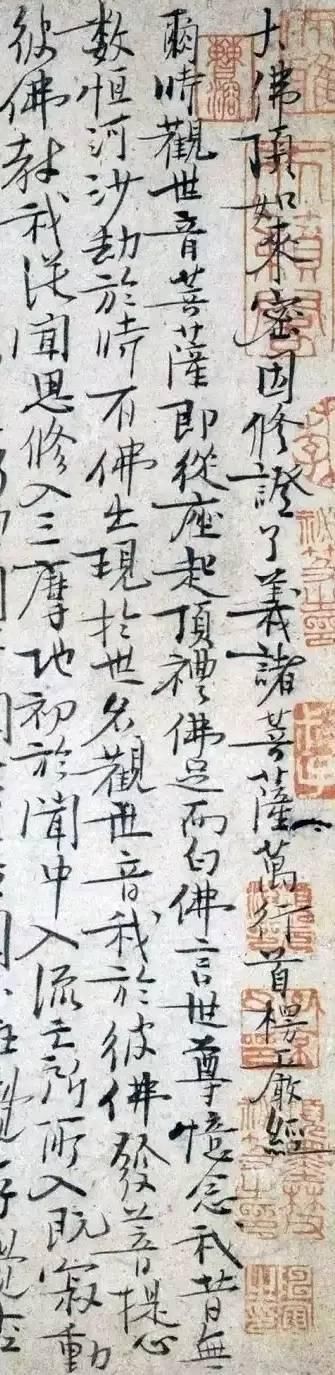 大佛頂如來密因修證了義諸菩薩萬行首楞嚴經
爾時觀世音菩薩即從座起頂禮佛足而白佛言世尊憶念我昔無
數恒河沙劫於時有佛出現於世名觀世音我於彼佛發菩提心
彼佛教我從聞思修入三摩地初於聞中入流亡所所入既寂動